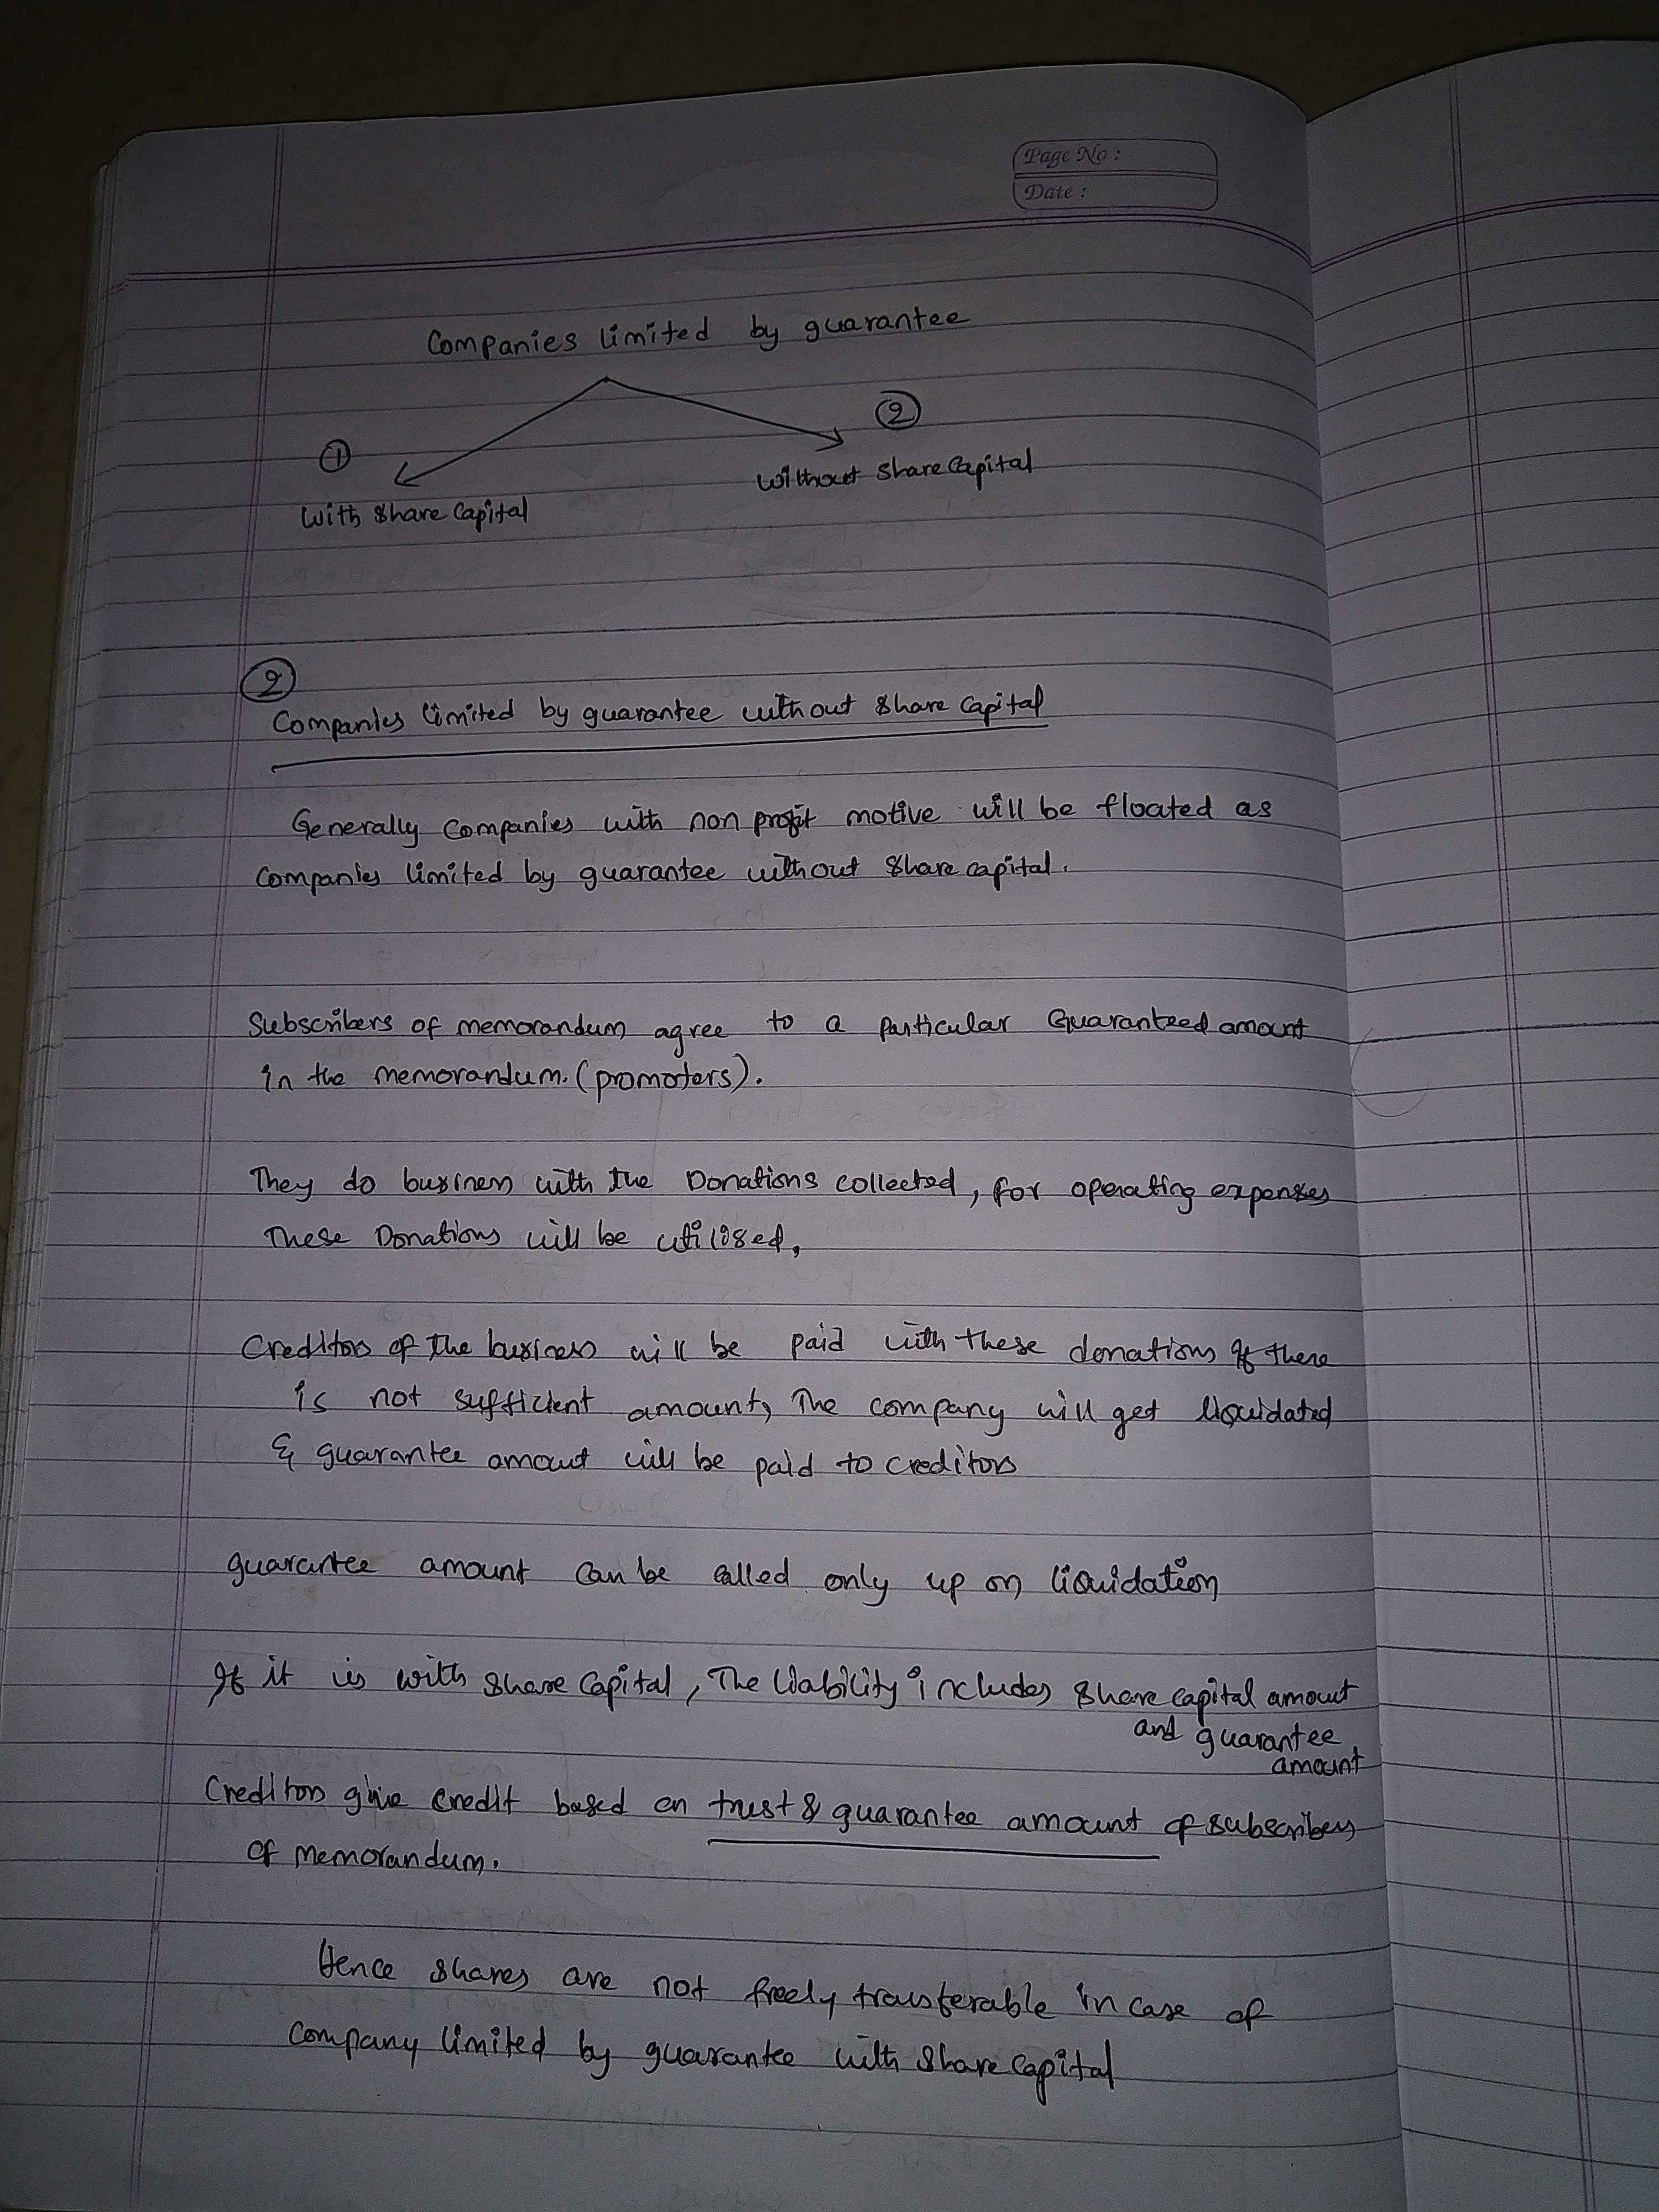 Page No :
Date :
Companies limited by guarantee
① ②
With Share Capital
Without Share Capital
②
Companies limited by guarantee without Share Capital
Generally Companies with non profit motive will be floated as
companies limited by guarantee without Share capital.
Subscribers of memorandum agree to a particular Guaranteed amount
in the memorandum. (promoters).
They do business with the Donations collected, for operating expenses
These Donations will be utilised,
Creditors of the business will be paid with these donations If there
is not sufficient amount, The company will get liquidated
& guarantee amount will be paid to creditors
guarantee amount can be called only up on liquidation
If it is with Share Capital, The liability includes Share capital amount
and guarantee
amount
Creditors give credit based on trust & guarantee amount of subscribers
of memorandum.
Hence shares are not freely transferable in case of
Company limited by guarantee with Share Capital